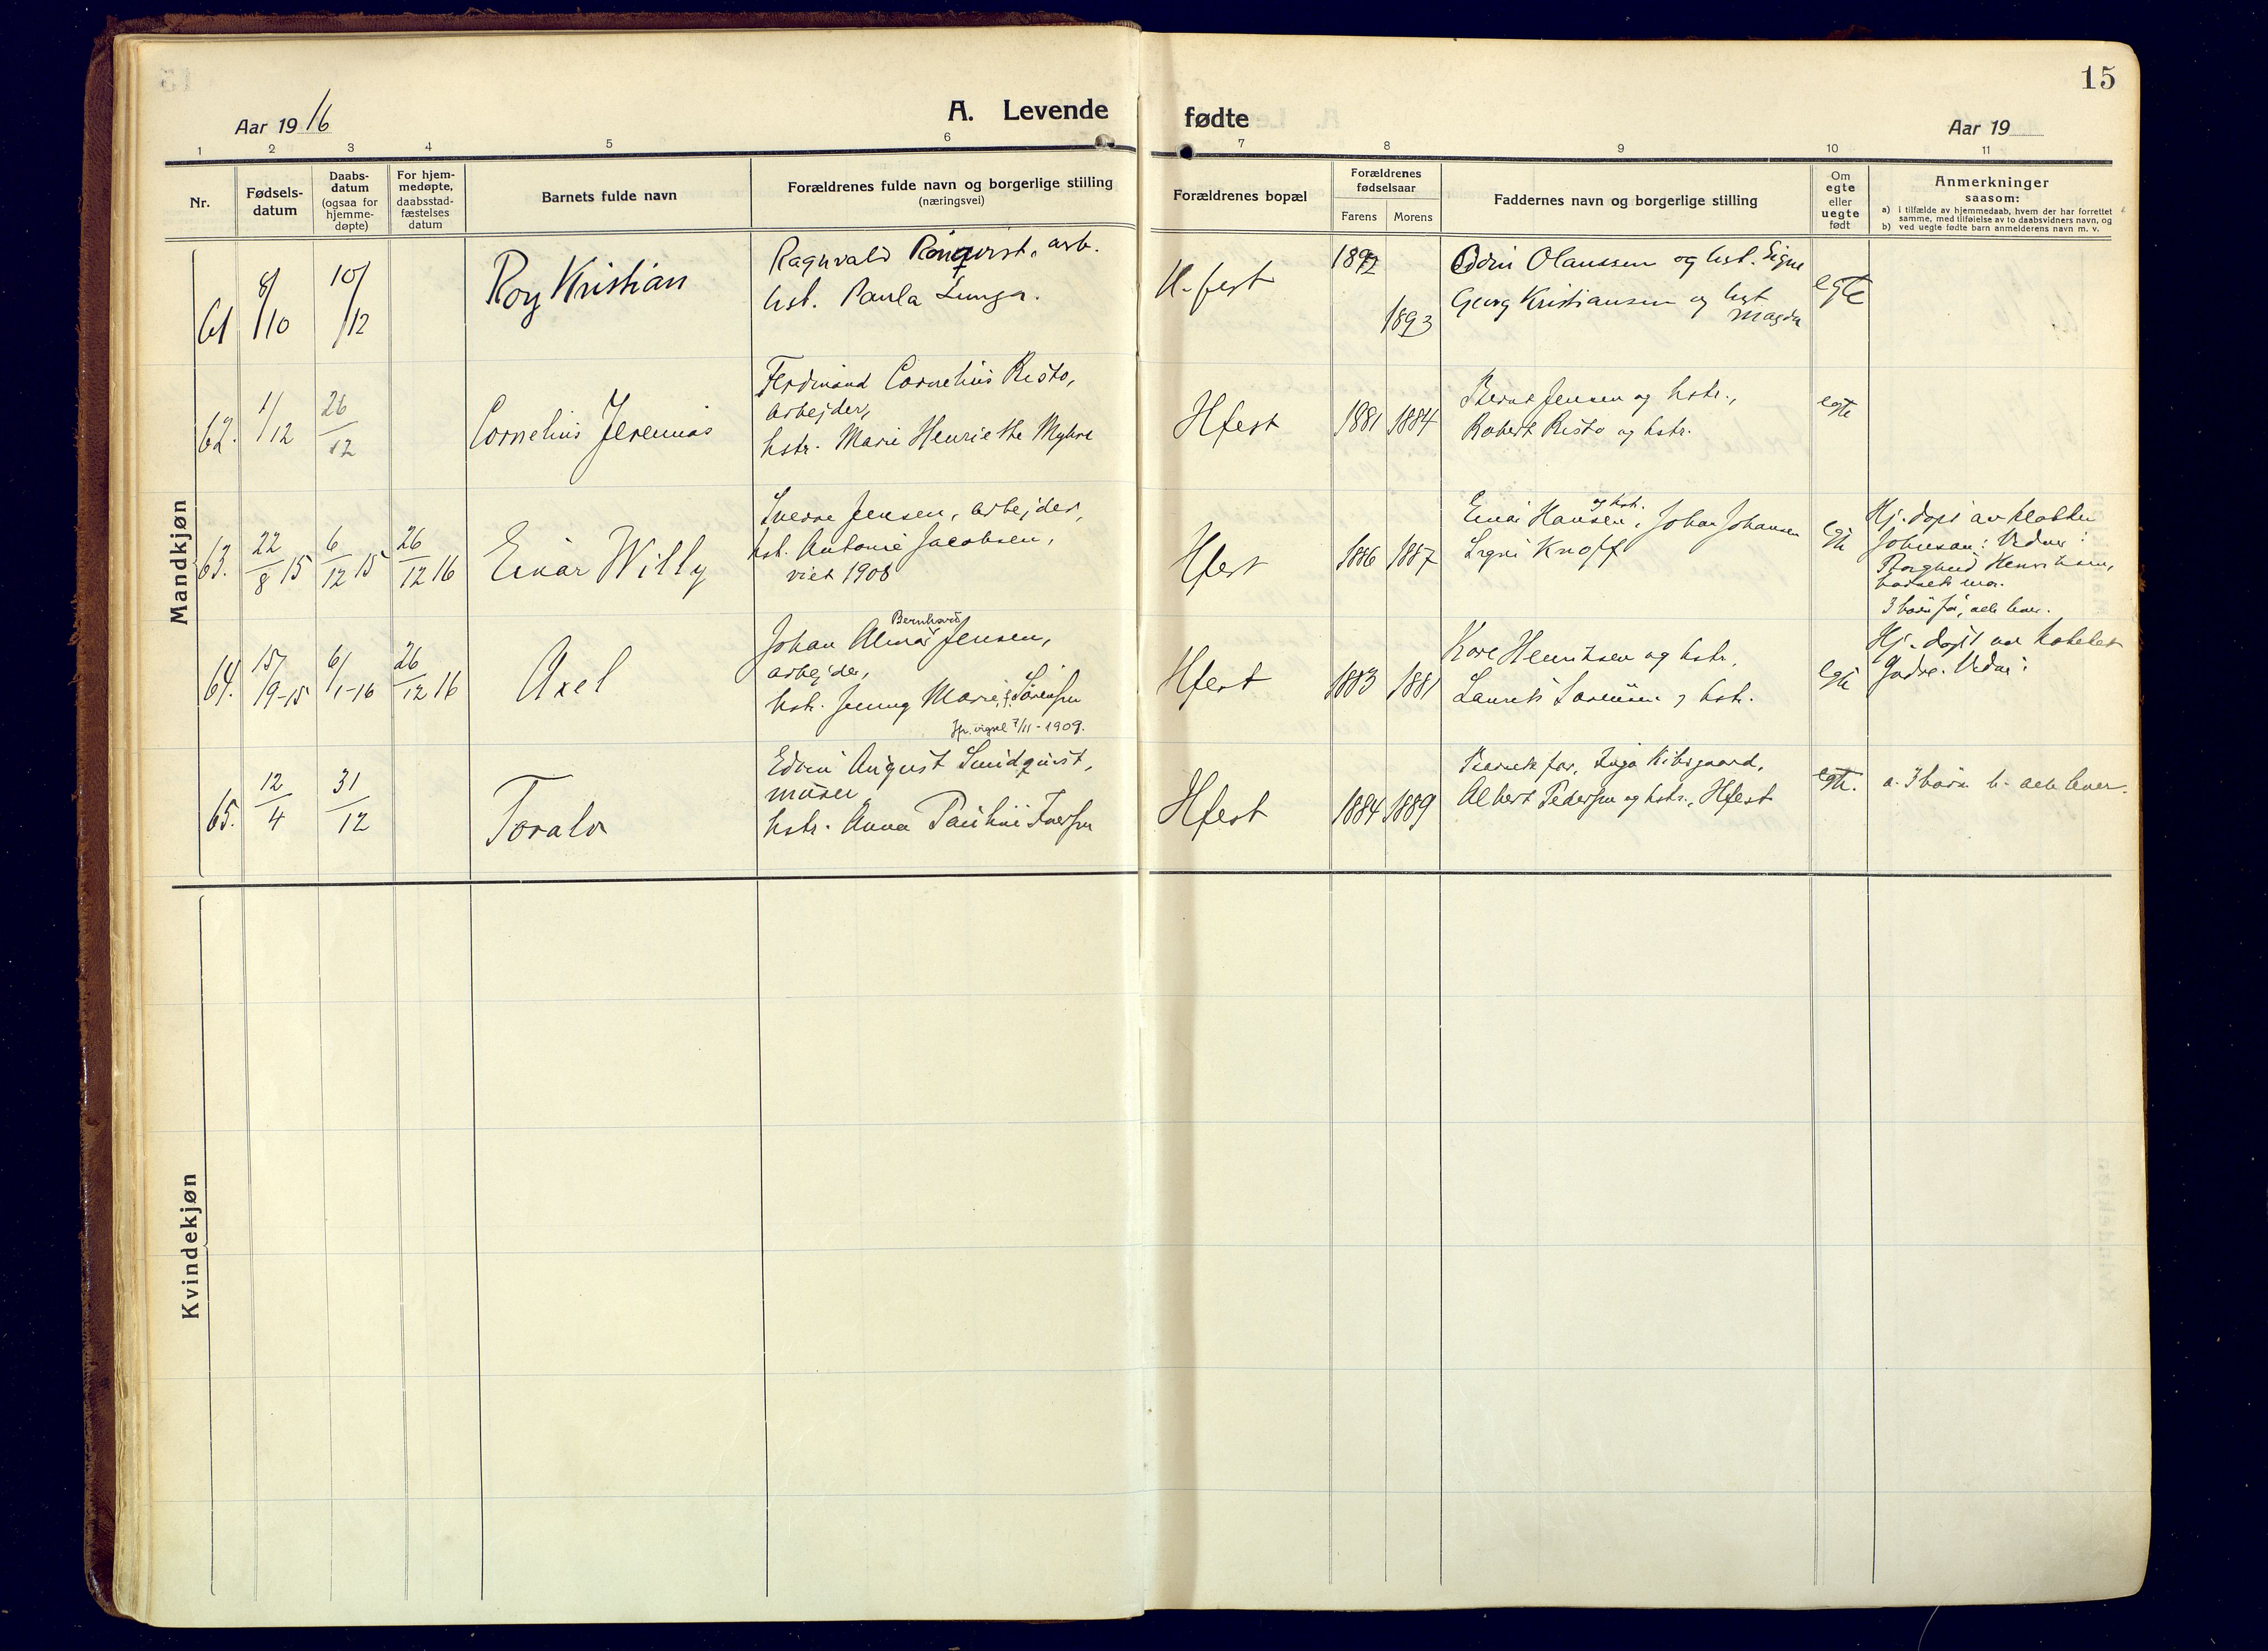 15
Aar 19 16
A. Levende fødte
Aar 19
1 2 3 4 5 6 7 8 9 10 11
Nr.
Fødsels-
datum
Daabs-
datum
(ogsaa for
hjemme-
døpte)
For hjem-
medøpte,
daabsstad-
fæstelses
datum
Barnets fulde navn
Forældrenes fulde navn og borgerlige stilling
(næringsvei)
Forældrenes bopæl
Forældrenes
fødselsaar
Farens Morens
Faddernes navn og borgerlige stilling
Om
egte
eller
uegte
født
Anmerkninger
saasom:
a) i tilfælde av hjemmedaab, hvem der har forrettet
samme, med tilføielse av to daabsvidners navn, og
b) ved uegte fødte barn anmelderens navn m. v.
Mandkjøn
61 8/10 10/12
Roy Kristian
Ragnvald Rönqvist, arb.
hst. Paula
H.fest
1892
1893
Odin Olaussen og hst. Signe
Georg Kristiansen og hst
Magda
egte
62. 1/12 26/12
Cornelius Jeremias
Ferdinand Cornelius Risto,
arbejder,
hstr. Marie Henriette Myhre
Hfest
1881 1884
Bernt Jensen og hstr.,
Robert Risto og hstr.
egte
63. 22/8 15 6/12 15 26/12 16
Einar Willy
Sverre Jensen, arbejder,
hst. Antonie Jacobsen,
viet 1908
Hfest
1886 1887
og hstr.
Einar Hansen, Johan Johansen
Signe Knoff
egte
Hj. døpt av
Johnsen: Vidner:
Borghild Henriksen,
barnets mor.
3 barn før, alle lever.
64. 15/19-15 6/1-16 26/12 16
Axel
Bernhard
Johan Almar Jensen,
arbejder,
hstr. Jenny Marie, f. Sörensen
vigsel 7/11-1909.
Hfest
1883 1881
Kore Henriksen og hstr.
Laurits Sörensen og hstr.
egte
Hj. døpt av kateket
Vidner:
65. 12/4 31/12
Toralv
Edvin August Smidquist,
murer
hstr. Anna Pauline Iversen
Hfest
1884 1889
Barnets far, Inga Kibsgaard,
Albert Pedersen og hstr., Hfest
egte.
a. 3 barn b. alle lever.
Kvindekjøn